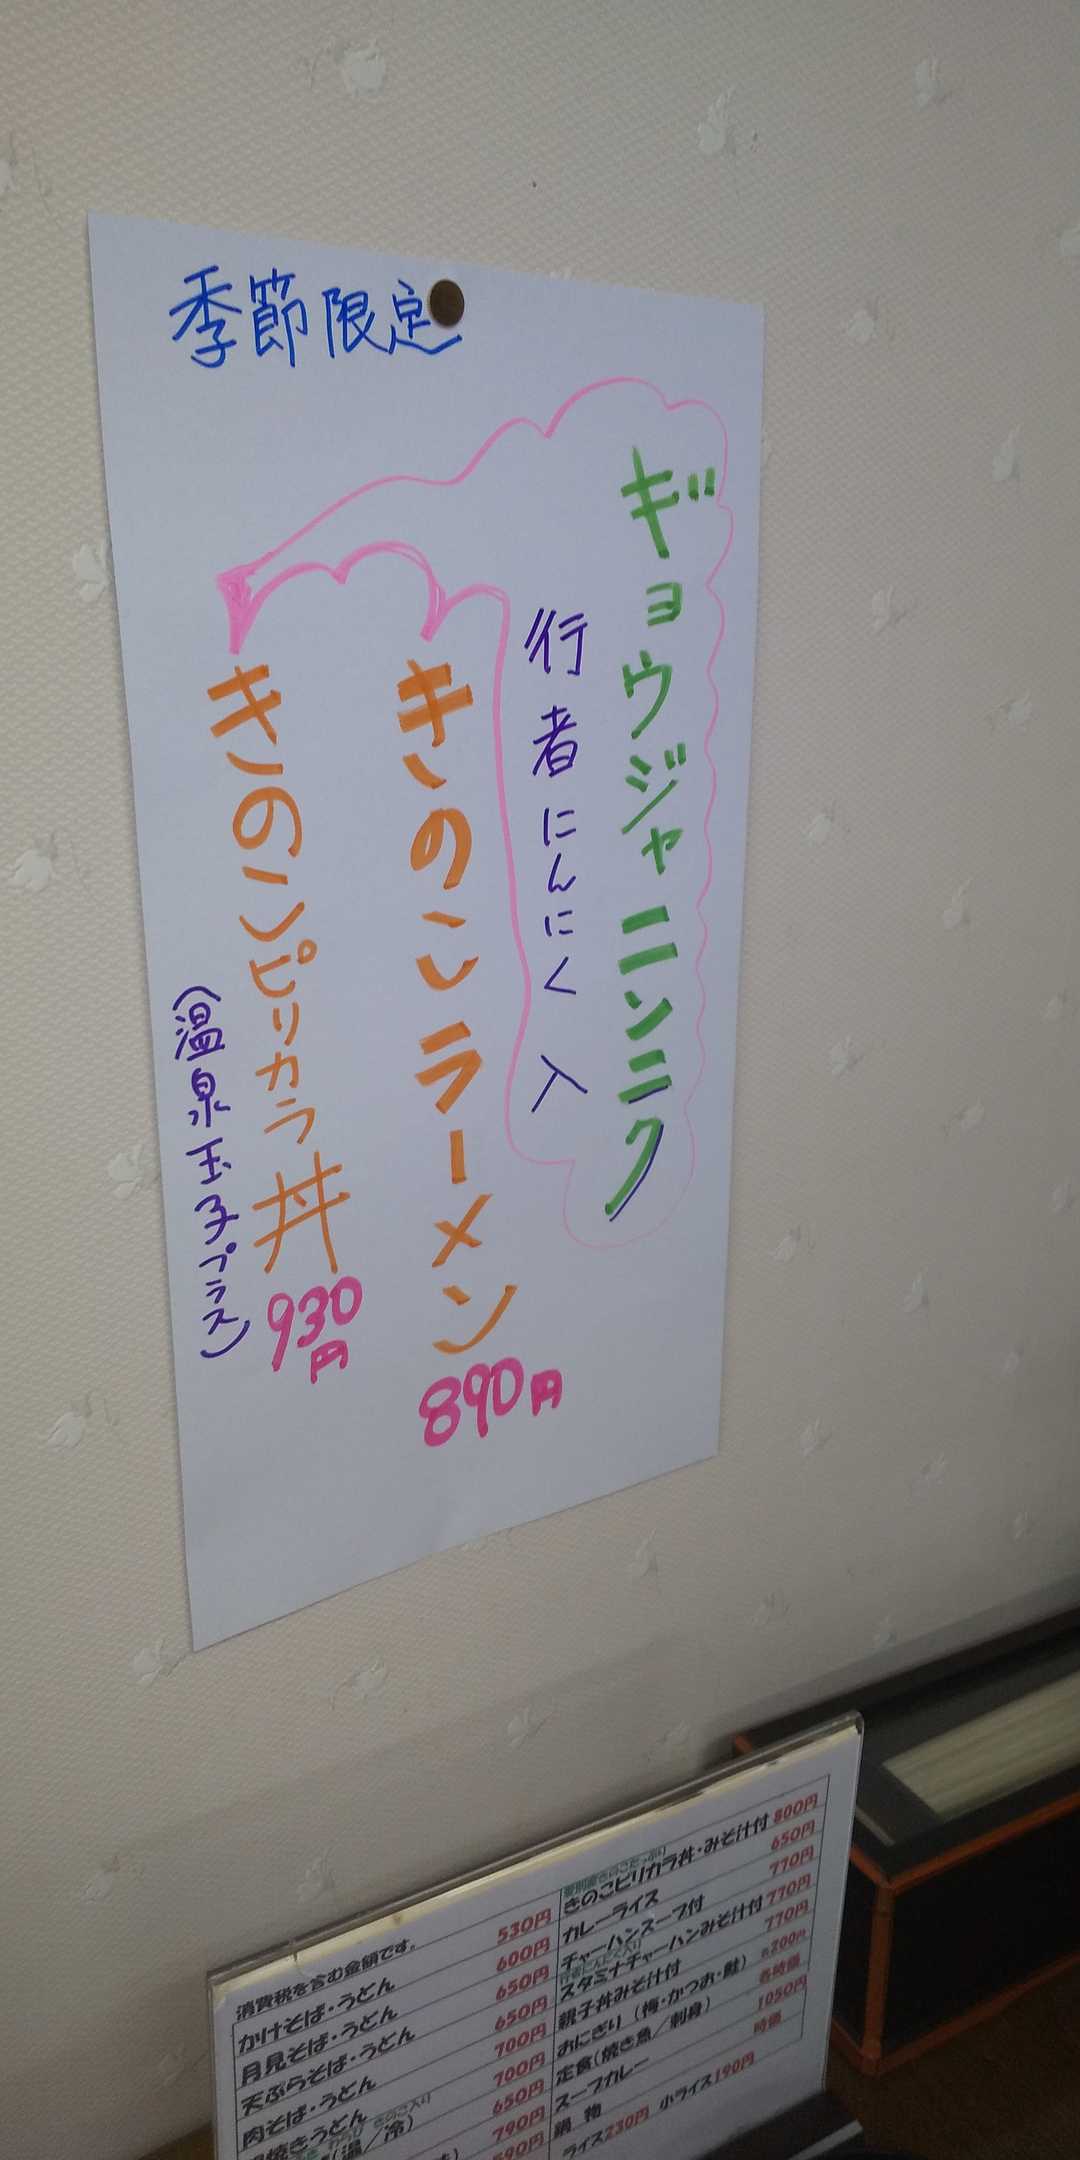 季節限定
ギョウジャニンニク
行者にんにく入
きのこラーメン
890円
きのこピリカラ丼
930円
(温泉玉子プラス)
消費税を含む金額です。
かけそば・うどん 530円
月見そば・うどん 600円
天ぷらそば・うどん 650円
肉そば・うどん 650円
焼きうどん 700円
(温/冷) 700円
650円
790円
590円
愛別産きのこたっぷり
きのこピリカラ丼・みそ汁付 800円
カレーライス 650円
チャーハンスープ付 770円
行者にんにく入り
スタミナチャーハンみそ汁付 770円
親子丼みそ汁付 770円
おにぎり(梅・かつお・鮭) 各200円
定食(焼き魚/刺身) 各時価
スープカレー 1050円
鍋物 時価
ライス230円 小ライス190円